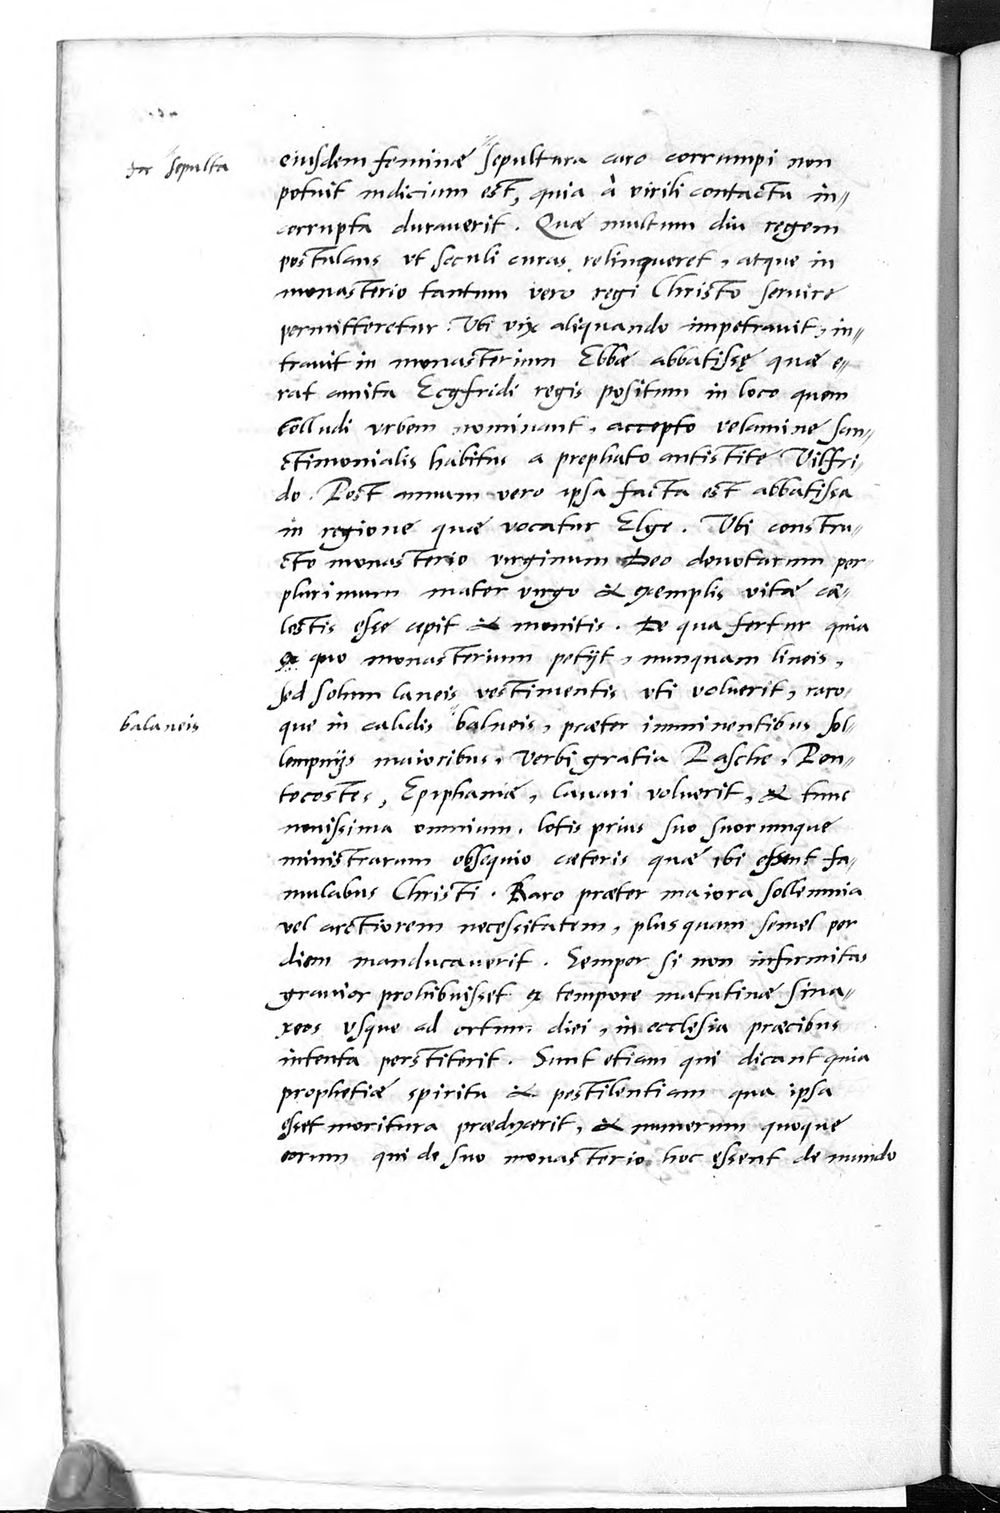 for sepulta
eiusdem feminæ sepultura caro corrumpi non
potuit indicium est, quia à virili contactu in-
corrupta duraverit. Quæ multum diu regem
postulans vt seculi curas relinqueret, atque in
monasterio tantum vero regi Christo seruire
permitteretur. Vbi vix aliquando impetrauit, in-
trauit in monasterium Ebbæ abbatissę quæ e-
rat amita Ecgfridi regis positum in loco quem
Colludi vrbem nominant, accepto velamine san-
ctimonialis habitus a prephato antistite Vilfri-
do. Post annum vero ipsa facta est abbatissa
in regione quæ vocatur Elge. Vbi constru-
cto monasterio virginum Deo deuotarum per-
plurimum mater virgo & exemplis vitæ cæ-
lestis esse cepit & monitis. De qua fertur quia
ex quo monasterium petijt, nunquam lineis,
sed solum laneis vestimentis vti voluerit, raro-
balaneis
que in calidis balneis, præter imminentibus sol-
lempnijs maioribus, verbi gratia Pasche, Pen-
tecostes, Epiphaniæ, lauari voluerit, & tunc
nouissima omnium, lotis prius suo suorumque
ministrarum obsequio cæteris quæ ibi essent fa-
mulabus Christi. Raro præter maiora sollemnia
vel arctiorem necessitatem, plus quam semel per
diem manducauerit. Semper si non infirmitas
grauior prohibuisset ex tempore matutinæ sina-
xeos vsque ad ortum diei, in ecclesia præcibus
intenta perstiterit. Sunt etiam qui dicant quia
prophetiæ spiritu & pestilentiam qua ipsa
esset moritura prædixerit, & numerum quoque
eorum qui de suo monasterio hoc essent de mundo